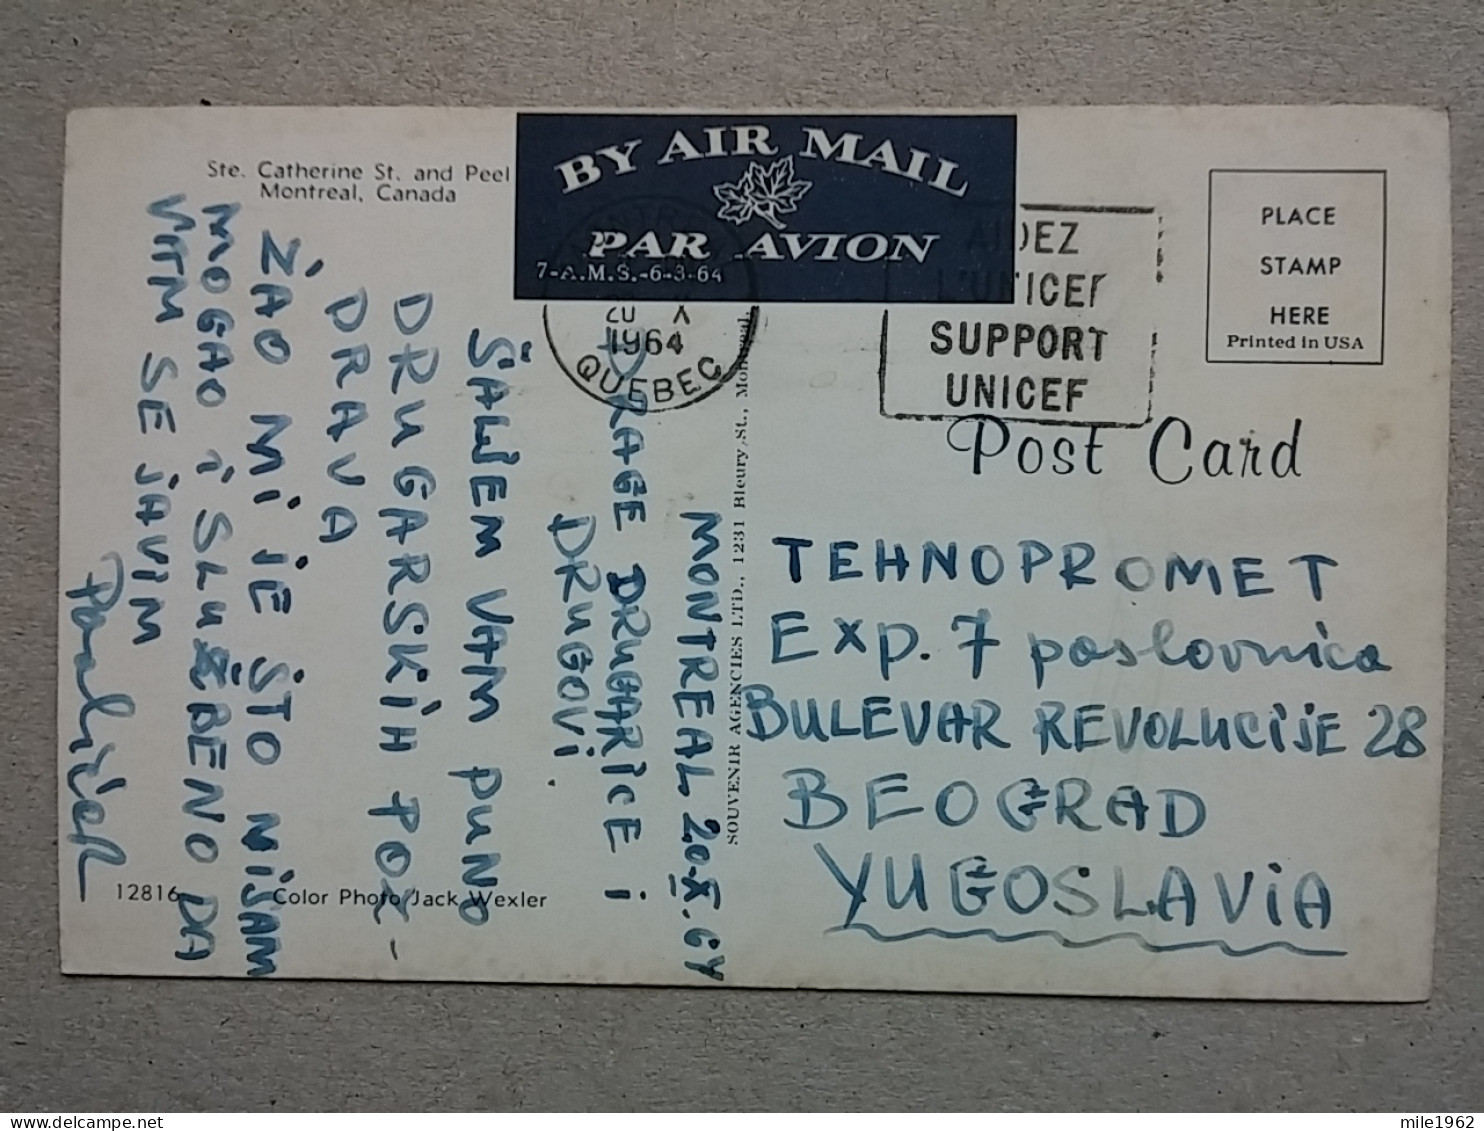 Ste. Catherine St. and Peel
Montreal, Canada
BY AIR MAIL
PAR AVION
7-A.M.S.-6-3-64
20 X
1964
QUEBEC
AIDEZ
L'UNICEF
SUPPORT
UNICEF
PLACE
STAMP
HERE
Printed in USA
Post Card
MONTREAL 20-X. 64
DRAGE DRUGARICE i
DRUGOVI.
ŠALJEM VAM PUNO
DRUGARSKIH POZ-
DRAVA
ŽAO MI JE ŠTO NISAM
MOGAO i SLUŽBENO DA
VAM SE JAVIM
TEHNOPROMET
Exp. 7 poslovnica
BULEVAR REVOLUCIJE 28
BEOGRAD
YUGOSLAVIA
SOUVENIR AGENCIES LTD., 1231 Bleury St.,
12816
Color Photo Jack Wexler
mile1962